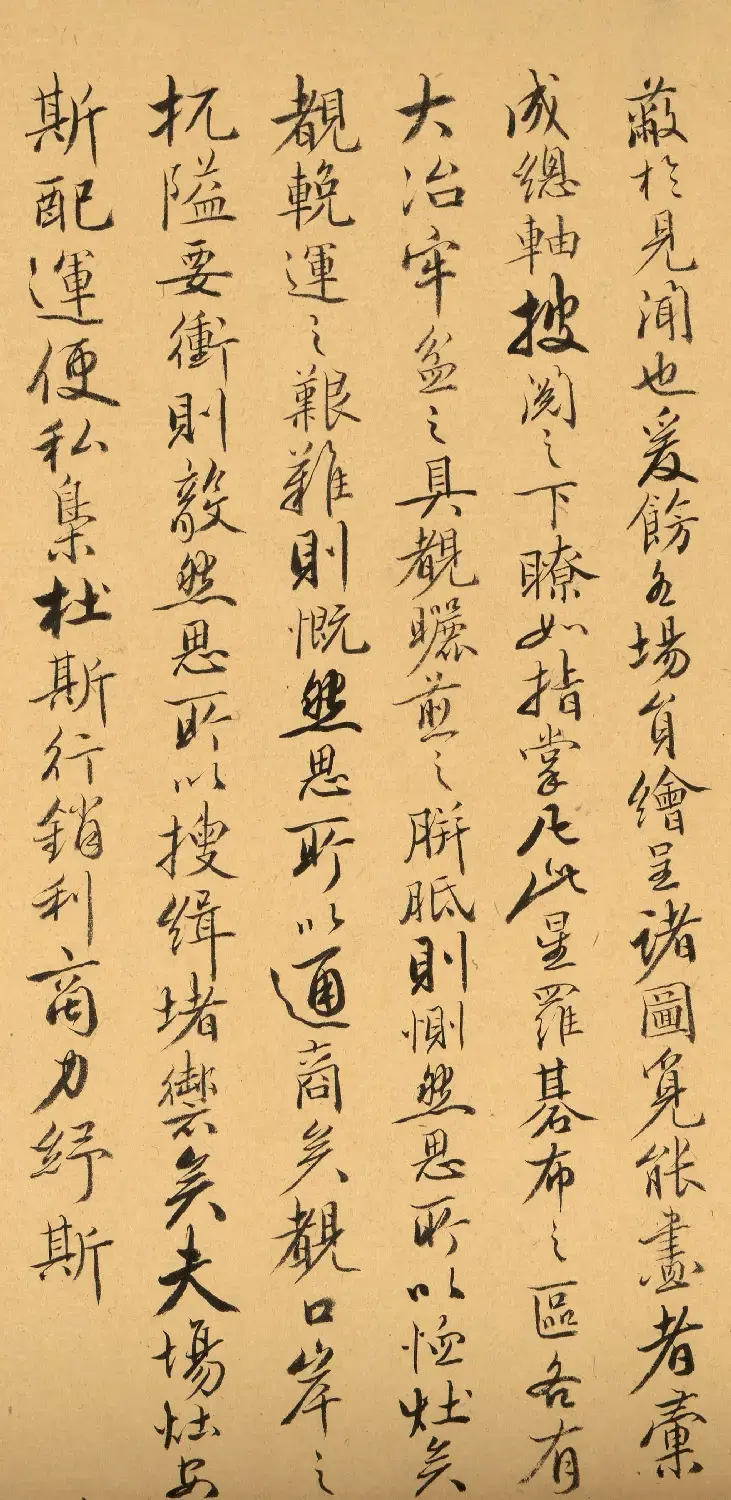 蔽於見聞也爰飭各場員繪呈諸圖覓能畫者彙
成總軸披閱之下瞭如指掌凡此星羅碁布之區各有
大冶牢盆之具覩曬煎之胼胝則惻然思所以恤灶矣
覩輓運之艱難則慨然思所以通商矣覩口岸之
扼隘要衝則毅然思所以搜緝堵禦矣夫場灶安
斯配運便私梟杜斯行銷利商力紓斯